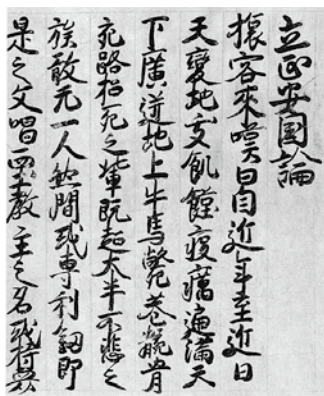 立正安国論
旅客來嘆曰自近年至近日
天變地夭飢饉疫癘遍満天
下廣迸地上牛馬斃巷骸骨
充路招死之輩既超大半不悲之
族敢无一人然間或專利釼即
是之文唱西土教主之名或持衆